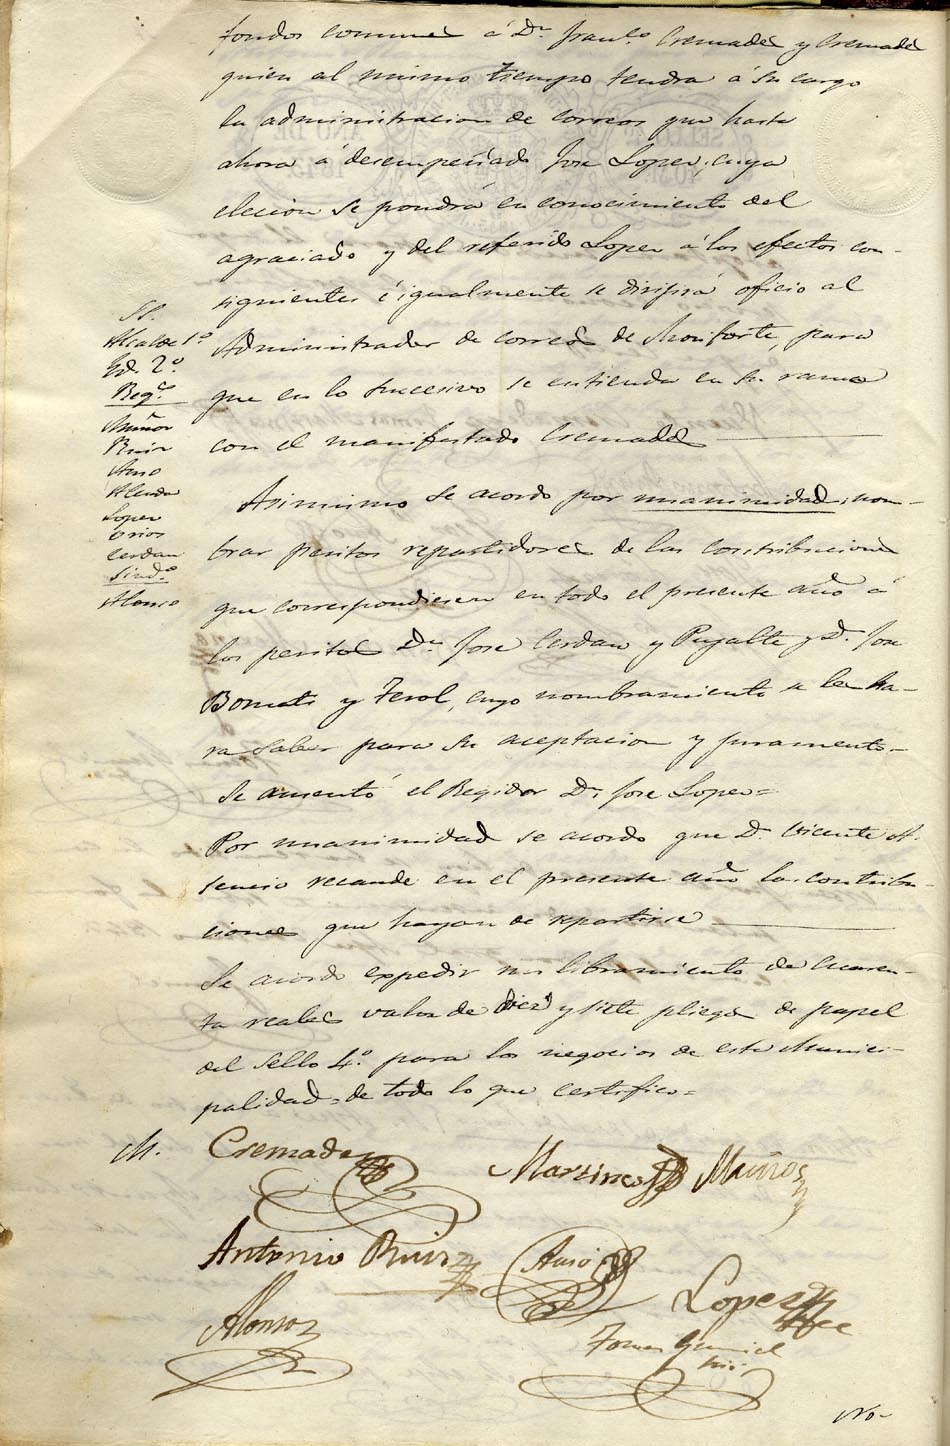 fondos comunes á Dn. Franco. Cremades y Cremades
quien al mismo tiempo tendra á su cargo
la administracion de correos que hasta
ahora á desempeñado Jose Lopez, cuya
eleccion se pondrá en conocimiento del
agraciado y del referido Lopez á los efectos con-
siguientes é igualmente se dirigirá oficio al
Administrador de correos de Monforte, para
que en lo sucesivo se entienda en su ramo
con el manifestado Cremades
Sr.
Alcalde 1º
Yd. 2º
Regs.
Muñoz
Ruiz
Auso
Alenda
Lopez
Cerdan
Sindo.
Alonso
Asimismo se acordo por unanimidad, nom-
brar peritos repartidores de las contribuciones
que correspondiesen en todo el presente año á
los peritos Dn. Jose Cerdan y Pujalte y D. Jose
Bonmati y Ferol, cuyo nombramiento se les ha-
ra saber para su aceptacion y juramento.=
Se ausentó el Regidor Dn. Jose Lopez=
Por unanimidad se acordo que D. Vicente A-
sencio recaude en el presente año las contribu-
ciones que hayan de repartirse
Se acordo expedir un libramiento de cuaren-
ta reales valor de diez y siete pliegos de papel
del sello 4º. para los negocios de este Munici-
palidad, de todo lo que certifico=
M. Cremades Martinez Muñoz
Antonio Ruiz Auso Lopez
Alonso
No-